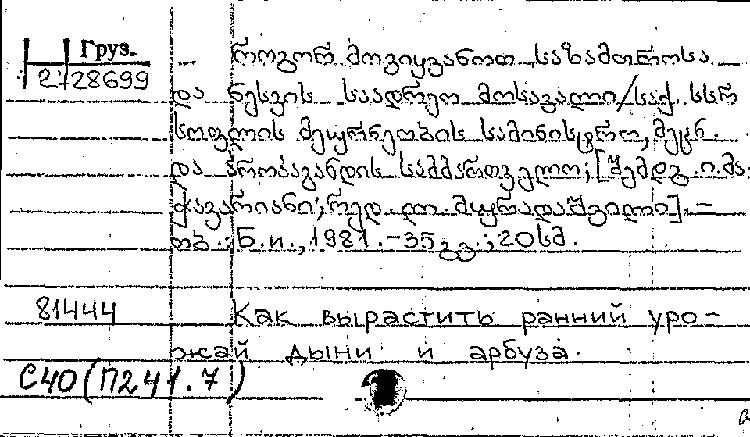 Груз.
2-28699
როგორ მოვიყვანოთ საზამთროსა
და ნესვის საადრეო მოსავალი/საქ. სსრ
სოფლის მეურნეობის სამინისტრო, მეცნ.
და პროპაგანდის სამმართველო; [შემდგ. ი. მა-
ჭავარიანი; რედ. ლ. მჭედლიშვილი]. –
თბ.: Б.и., 1981. – 35 გვ.; 20 სმ.
81444 Как вырастить ранний уро-
жай дыни и арбуза.
С40(П241.7)